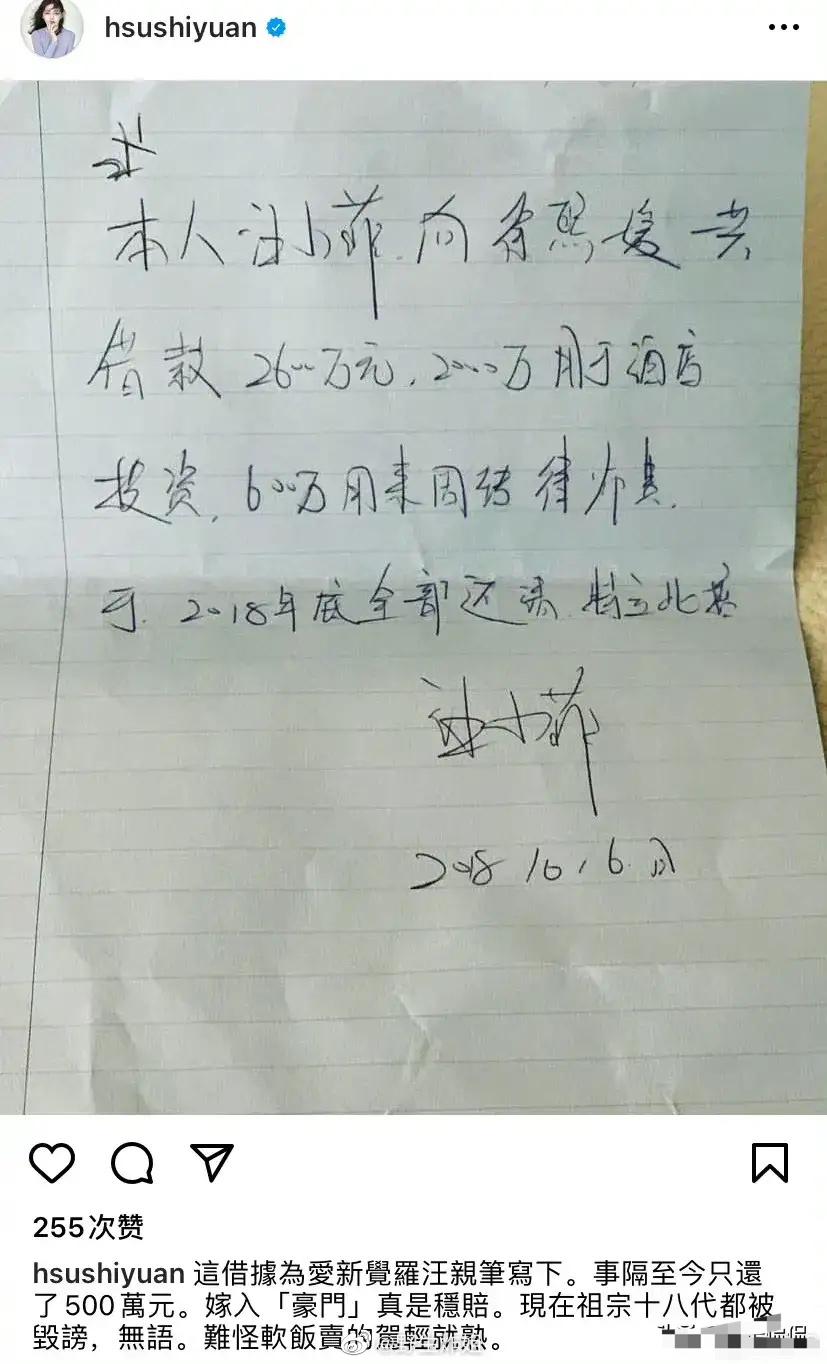 hsushiyuan
本人汪小菲.向徐熙媛共
借款2600万元,2000万用于酒店
投资,600万用来周转律师费.
于.2018年底全部还清.特立此据
汪小菲
255次赞
hsushiyuan 這借據為愛新覺羅汪親筆寫下。事隔至今只還
了500萬元。嫁入「豪門」真是穩賠。現在祖宗十八代都被
毀謗，無語。難怪軟飯賣的駕輕就熟。